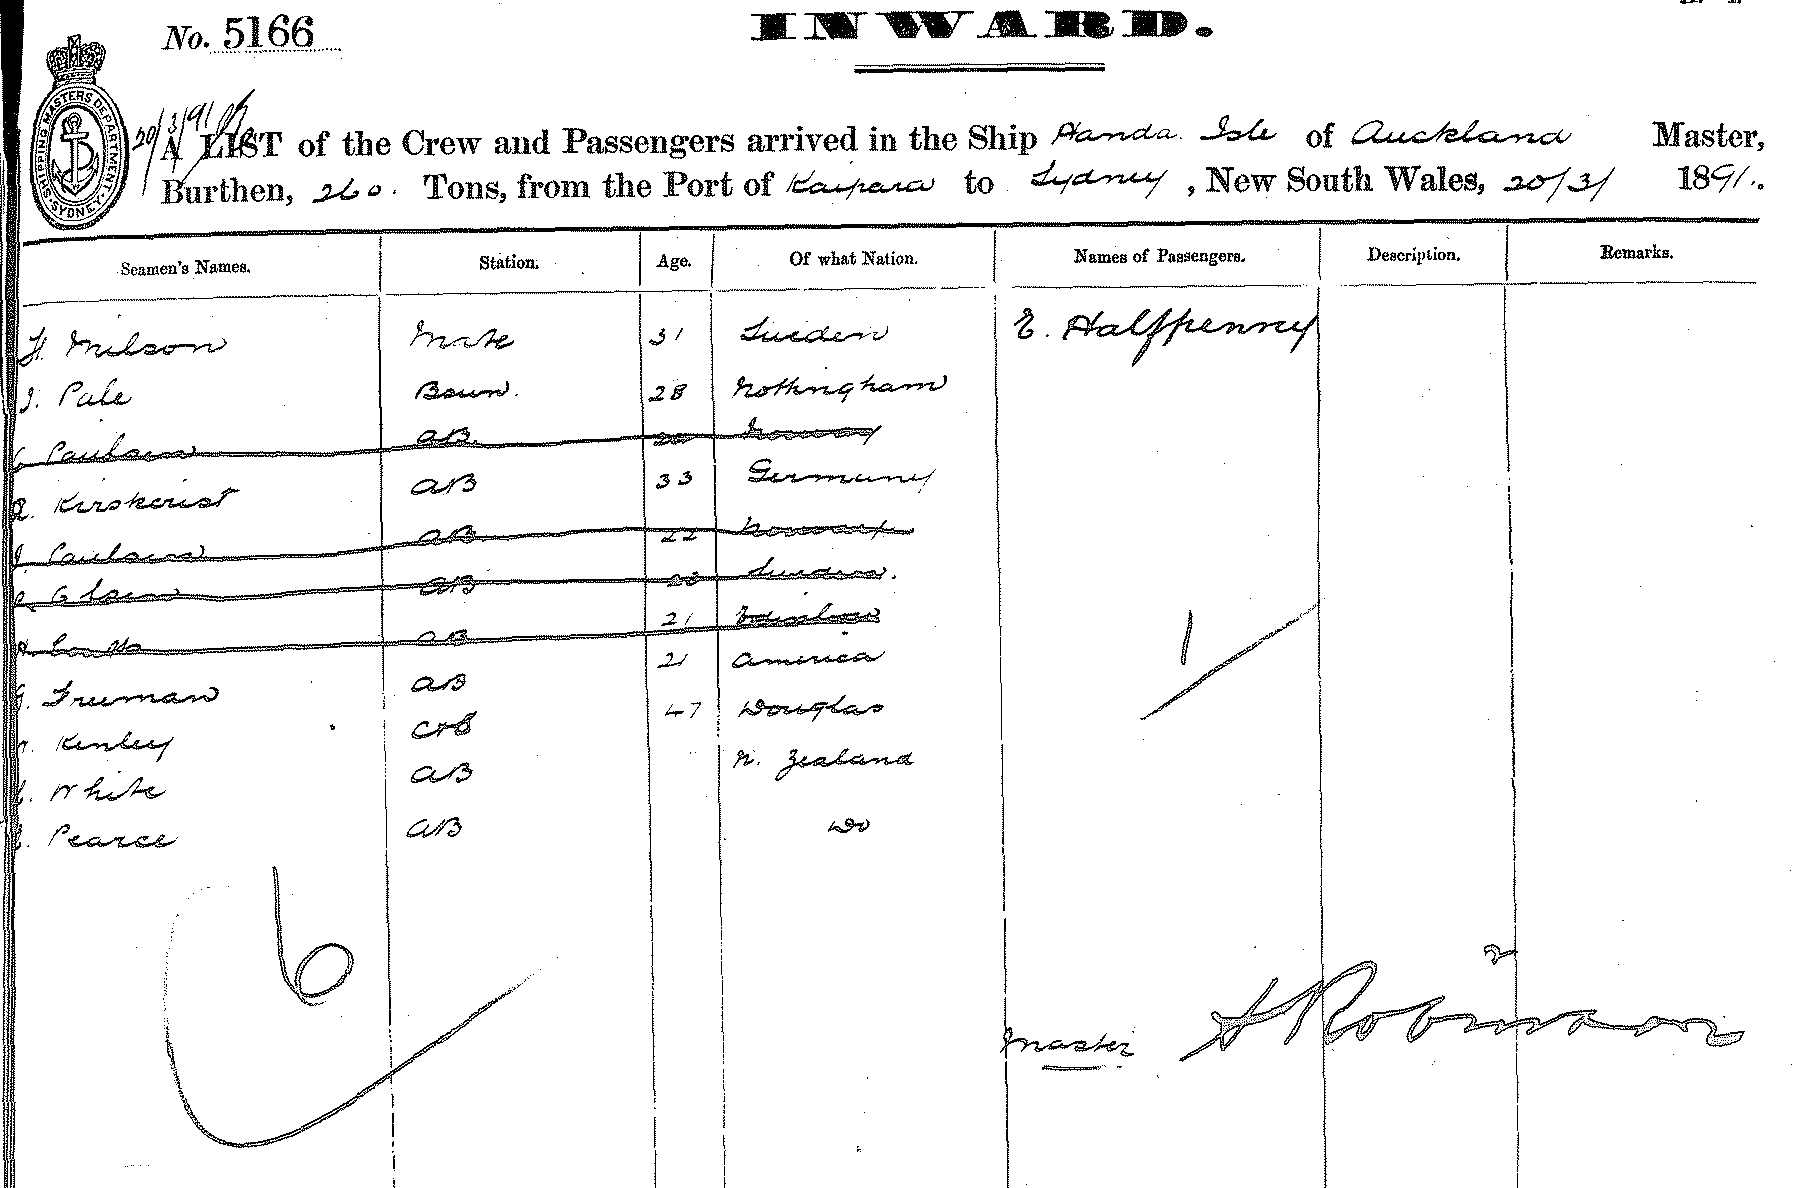 No. 5166
INWARD.
SHIPPING MASTERS DEPARTMENT SYDNEY
20/3/91
A LIST of the Crew and Passengers arrived in the Ship Handa Isle of Auckland Master,
Burthen, 260. Tons, from the Port of Kaipara to Sydney, New South Wales, 20/3/ 1891.
Seamen's Names. Station. Age. Of what Nation. Names of Passengers. Description. Remarks.
Milson Mate 31 Sweden E. Halfpenny
J. Pale Bsun. 28 Nottingham
Paulsen AB. Norway
Kirskerist AB 33 Germany
J. Paulsen AB 22 Norway
Olsen AB Sweden.
AB 21
Freeman AB 21 America
Kenley C&S 47 Douglas
White AB N. Zealand
Pearce AB Do
1
6
Master A Robinson